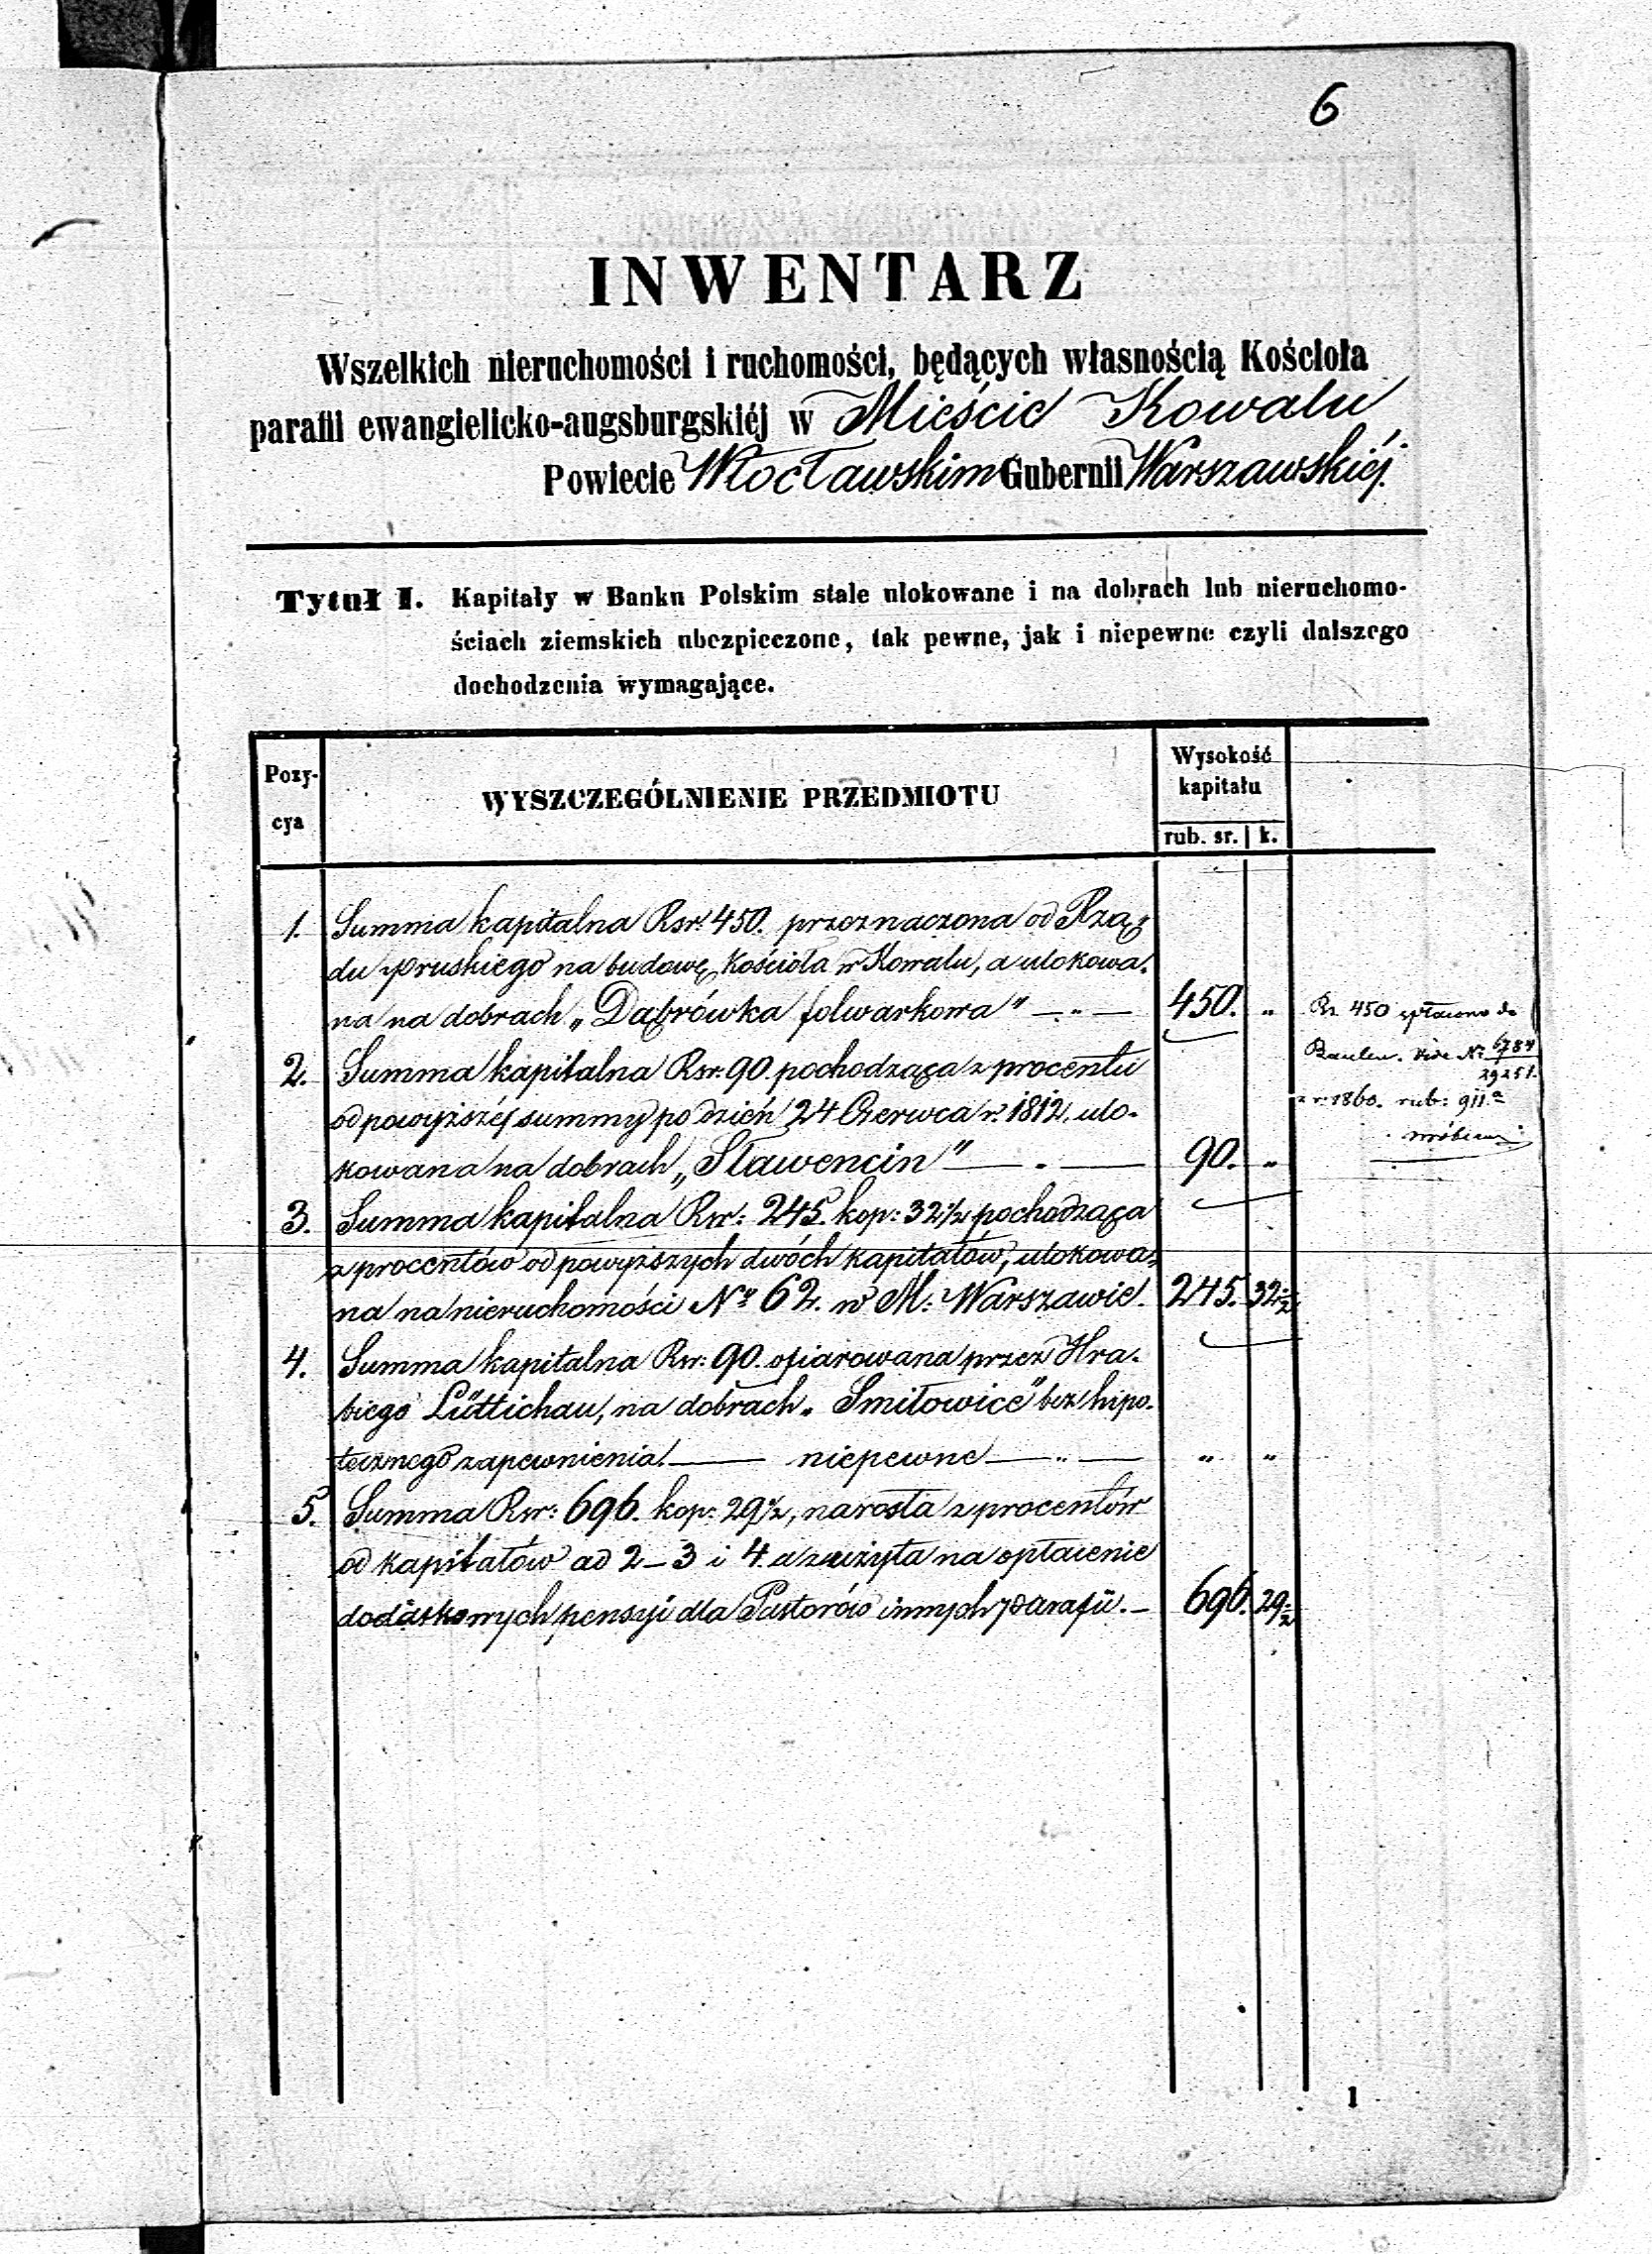 6
INWENTARZ
Wszelkich nieruchomości i ruchomości, będących własnością Kościoła
parafii ewangielicko-augsburgskiéj w Mieście Kowalu
Powiecie Włocławskim Gubernii Warszawskiéj.
Tytuł I. Kapitały w Banku Polskim stale ulokowane i na dobrach lub nieruchomo-
ściach ziemskich ubezpieczone, tak pewne, jak i niepewne czyli dalszego
dochodzenia wymagające.
Pozy-
cya
WYSZCZEGÓLNIENIE PRZEDMIOTU
Wysokość
kapitału
rub. sr. k.
1. Summa kapitalna Rsr: 450. przeznaczona od Rzą-
du pruskiego na budowę kościoła w Kowalu, a ulokowa-
na na dobrach „Dąbrówka folwarkowa" — „ — 450. „
2. Summa kapitalna Rsr: 90. pochodząca z procentu
od powyższéj summy po dzień 24 Czerwca r. 1812. ulo-
kowana na dobrach „Sławencin" — . — 90. „
3. Summa kapitalna Rsr: 245. kop: 32½ pochodząca
z procentów od powyższych dwóch kapitałów, ulokowa-
na na nieruchomości Nº 62. w M: Warszawie. 245. 32½
4. Summa kapitalna Rsr: 90. ofiarowana przez Hra-
biego Lüttichau, na dobrach „Smiłowice" bez hipo-
tecznego zapewnienia. — niepewne — „ — „ „
5. Summa Rsr: 696. kop: 29½, narosła z procentów
od kapitałów ad 2–3 i 4. a zużyta na opłacenie
dodatkowych pensyi dla Pastorów innych parafii. – 696. 29½
Rs. 450 spłacono do
Banku. vide Nº 6784
29251.
z r. 1860. rub: 911.
1